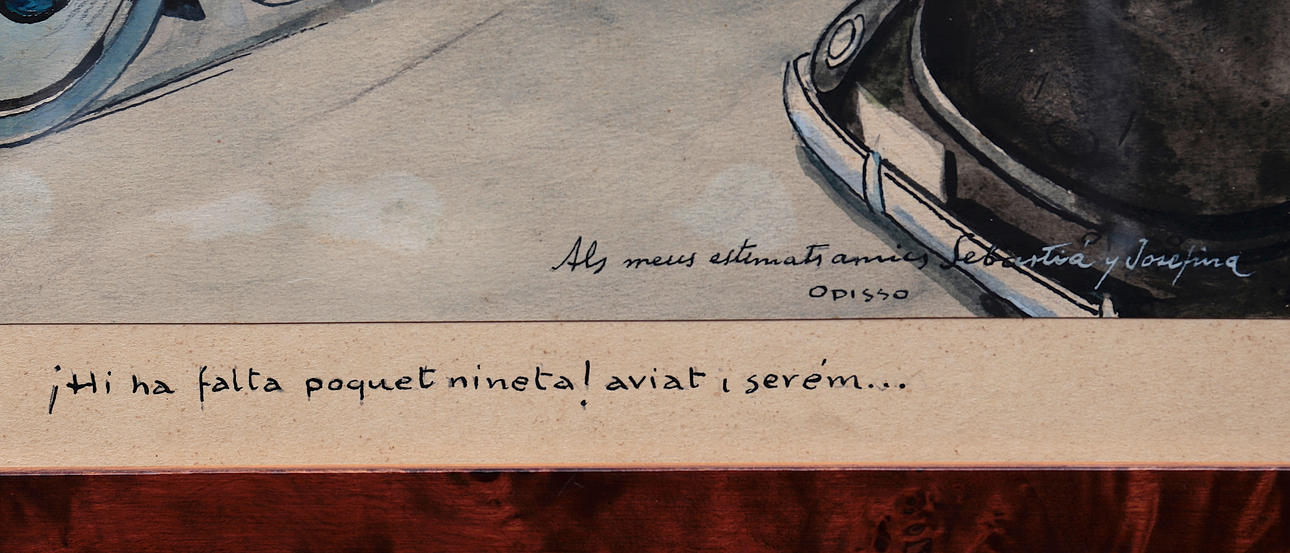 Als meus estimats amics Sebastiá y Josefina
ODISSO
¡Hi ha falta poquet nineta! aviat i serém...